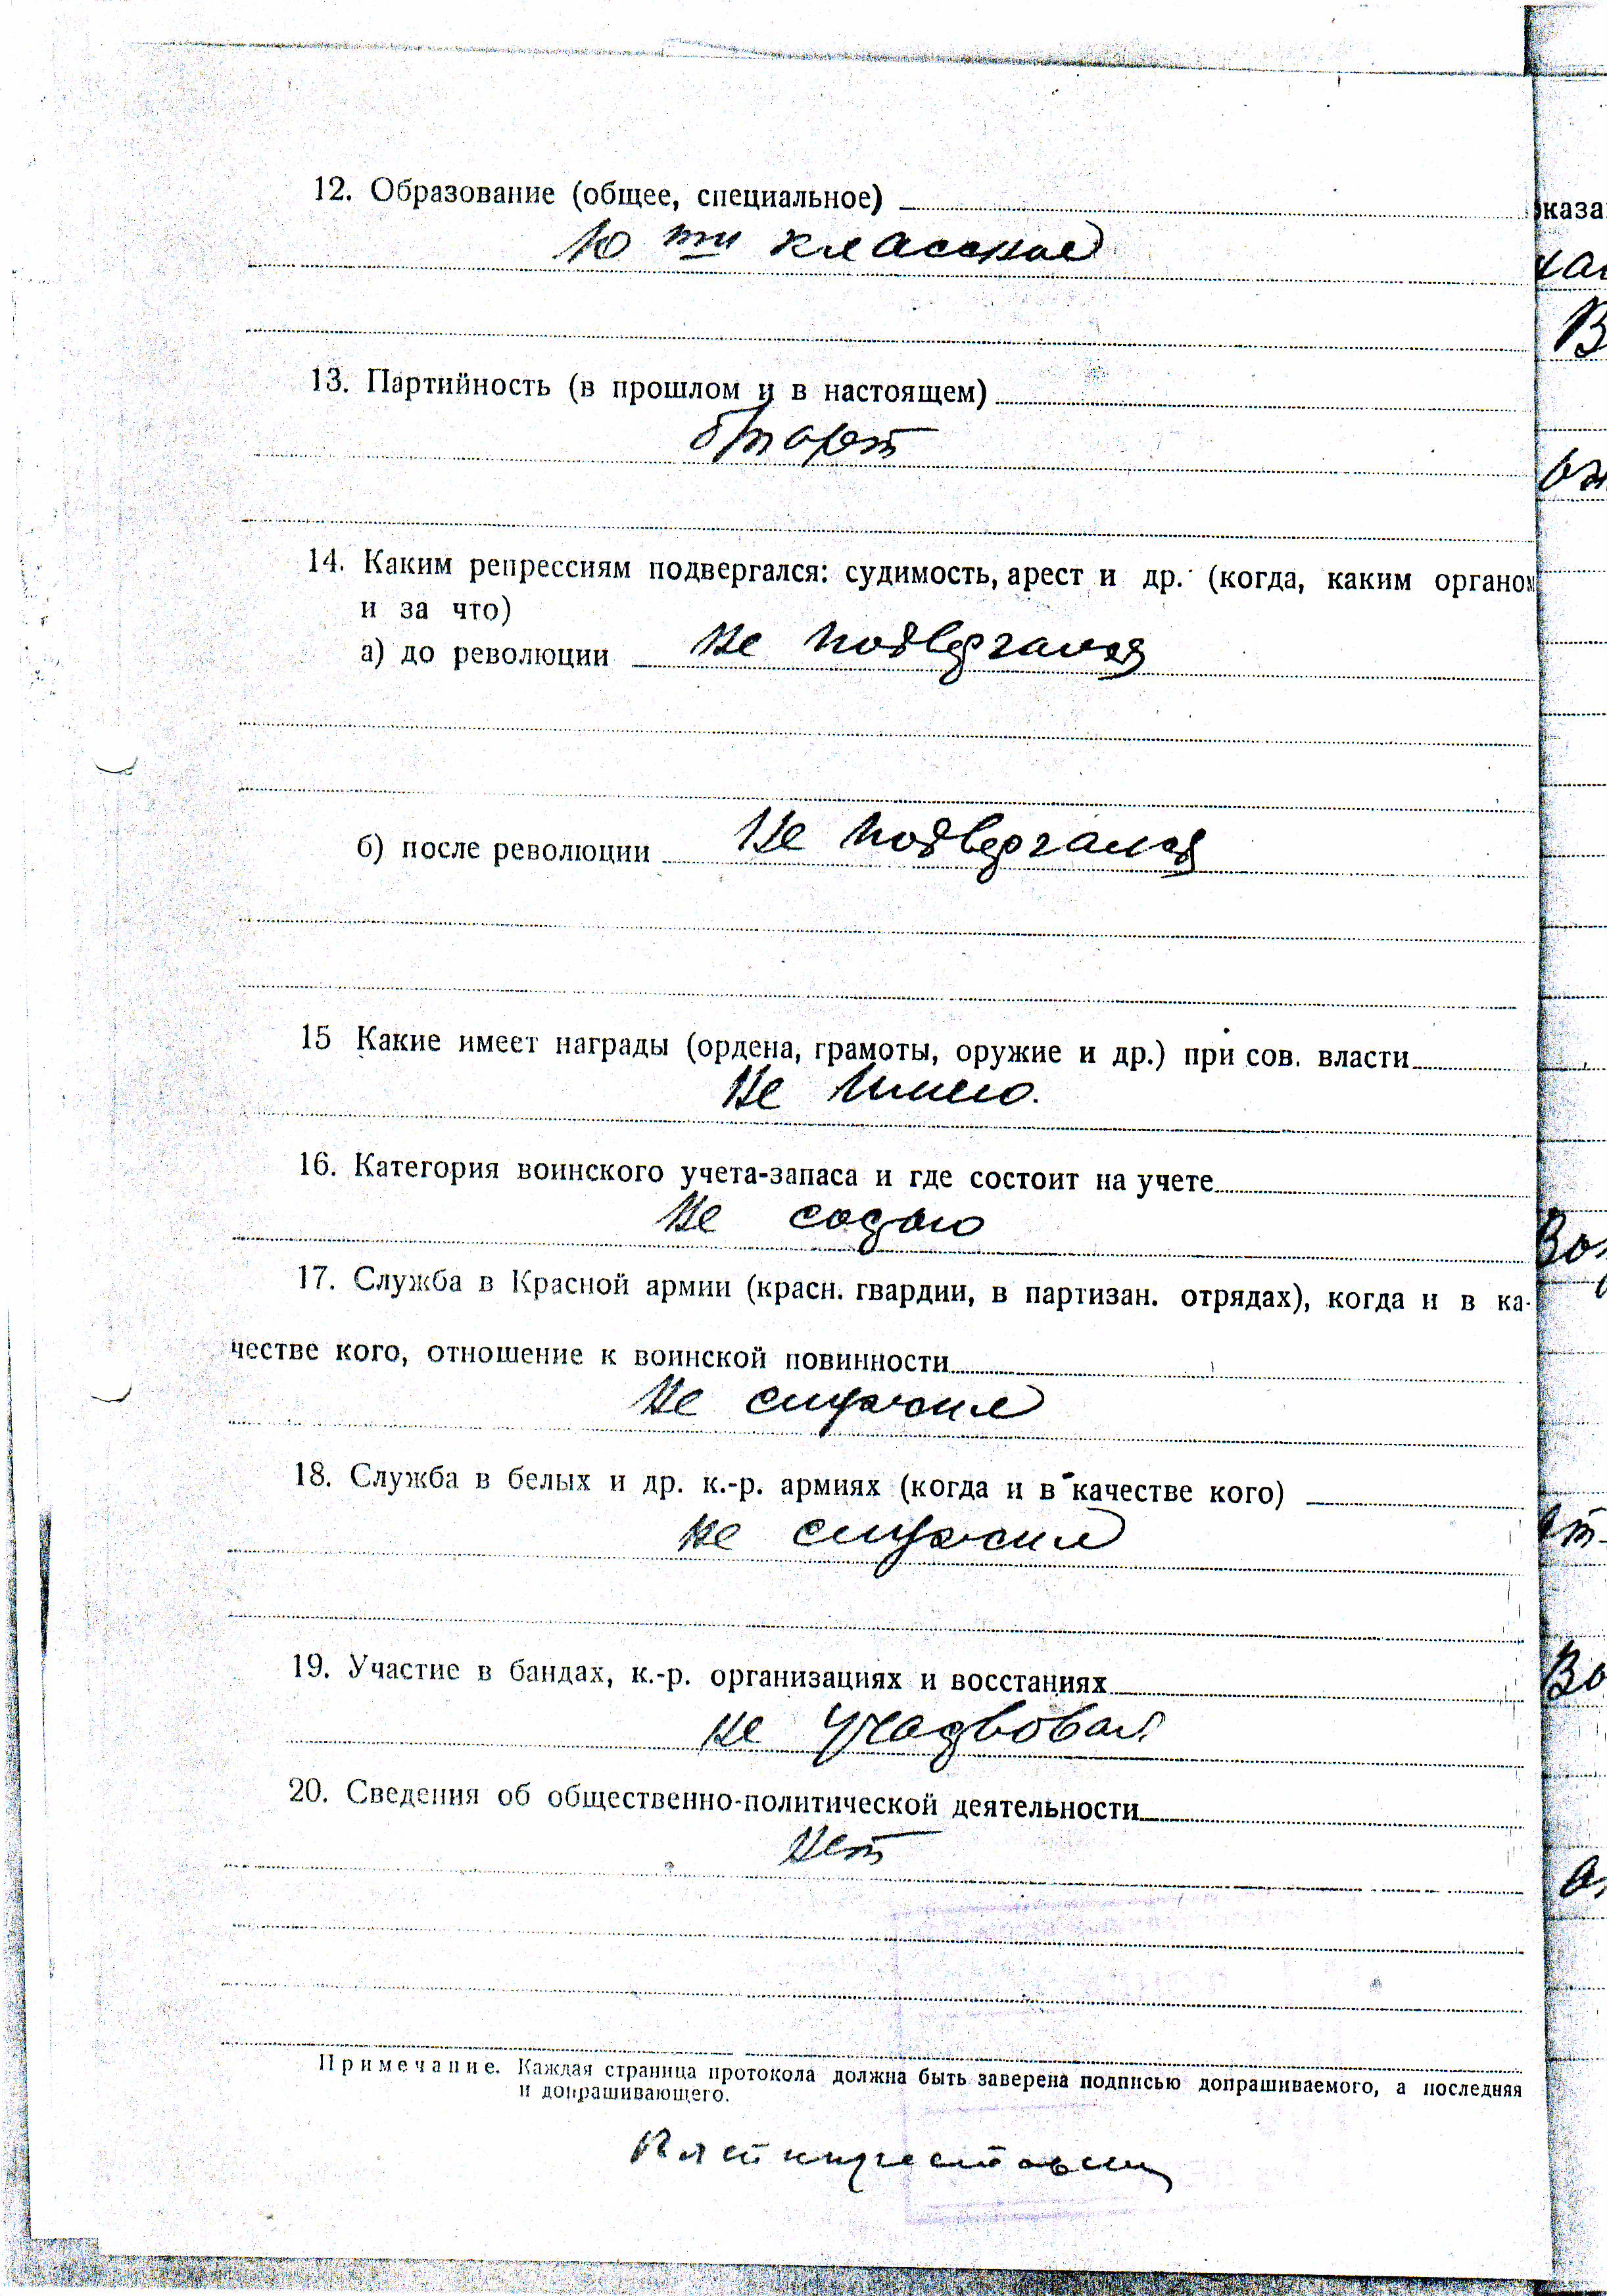 12. Образование (общее, специальное)
10 ти классное
13. Партийность (в прошлом и в настоящем)
б/парт
14. Каким репрессиям подвергался: судимость, арест и др. (когда, каким органом
и за что)
а) до революции не подвергался
б) после революции не подвергался
15 Какие имеет награды (ордена, грамоты, оружие и др.) при сов. власти
не имею.
16. Категория воинского учета-запаса и где состоит на учете
не состою
17. Служба в Красной армии (красн. гвардии, в партизан. отрядах), когда и в ка-
честве кого, отношение к воинской повинности
не служил
18. Служба в белых и др. к.-р. армиях (когда и в качестве кого)
не служил
19. Участие в бандах, к.-р. организациях и восстаниях
не участвовал
20. Сведения об общественно-политической деятельности
нет
Примечание. Каждая страница протокола должна быть заверена подписью допрашиваемого, а последняя
и допрашивающего.